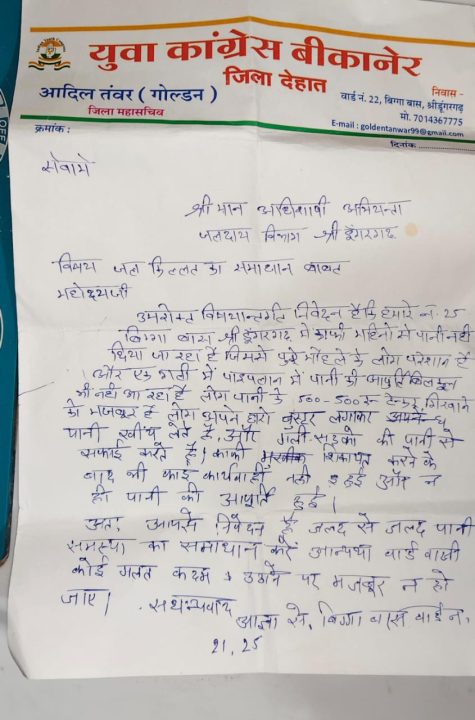 युवा कांग्रेस बीकानेर
जिला देहात
आदिल तंवर (गोल्डन)
जिला महासचिव
निवास -
वार्ड नं. 22, बिग्गा बास, श्रीडूंगरगढ़
मो. 7014367775
E-mail : goldentanwar99@gmail.com
क्रमांक :
दिनांक
सेवामे
श्री मान अधिशाषी अभियन्ता
जलदाय विभाग श्री डुंगरगढ़
विषय जल किल्लत का समाधान बाबत
महोदयजी
उपरोक्त विषयान्तर्गत निवेदन है कि हमारे न. 25
बिग्गा बास श्री डुंगरगढ़ में काफी महिनो से पानी नही
दिया जा रहा है जिससे पुरे मोहले के लोग परेशान है
और एक गली में पाइपलान में पानी की आपुर्ति बिलकुल
भी नही आ रहा है लोग पानी के 500-500रु टेन्कर गिरवाने
को मजबुर है लोग अपने द्वारो बुस्टर लगाकर
पानी खीच लेते है, और गली-सड़को की पानी से
सफाई करते है। काफी शिकायत करने के
बाद भी कोई कार्यवाही नही हुई और न
ही पानी की आपुर्ति हुई।
अतः आपसे निवेदन है जल्द से जल्द पानी
समस्या का समाधान करें अन्यथा वार्ड वासी
कोई गलत कदम उठाने पर मजबुर न हो
जाए। सधन्यवाद
आज्ञा से, बिग्गा बास वार्ड न.
21, 25